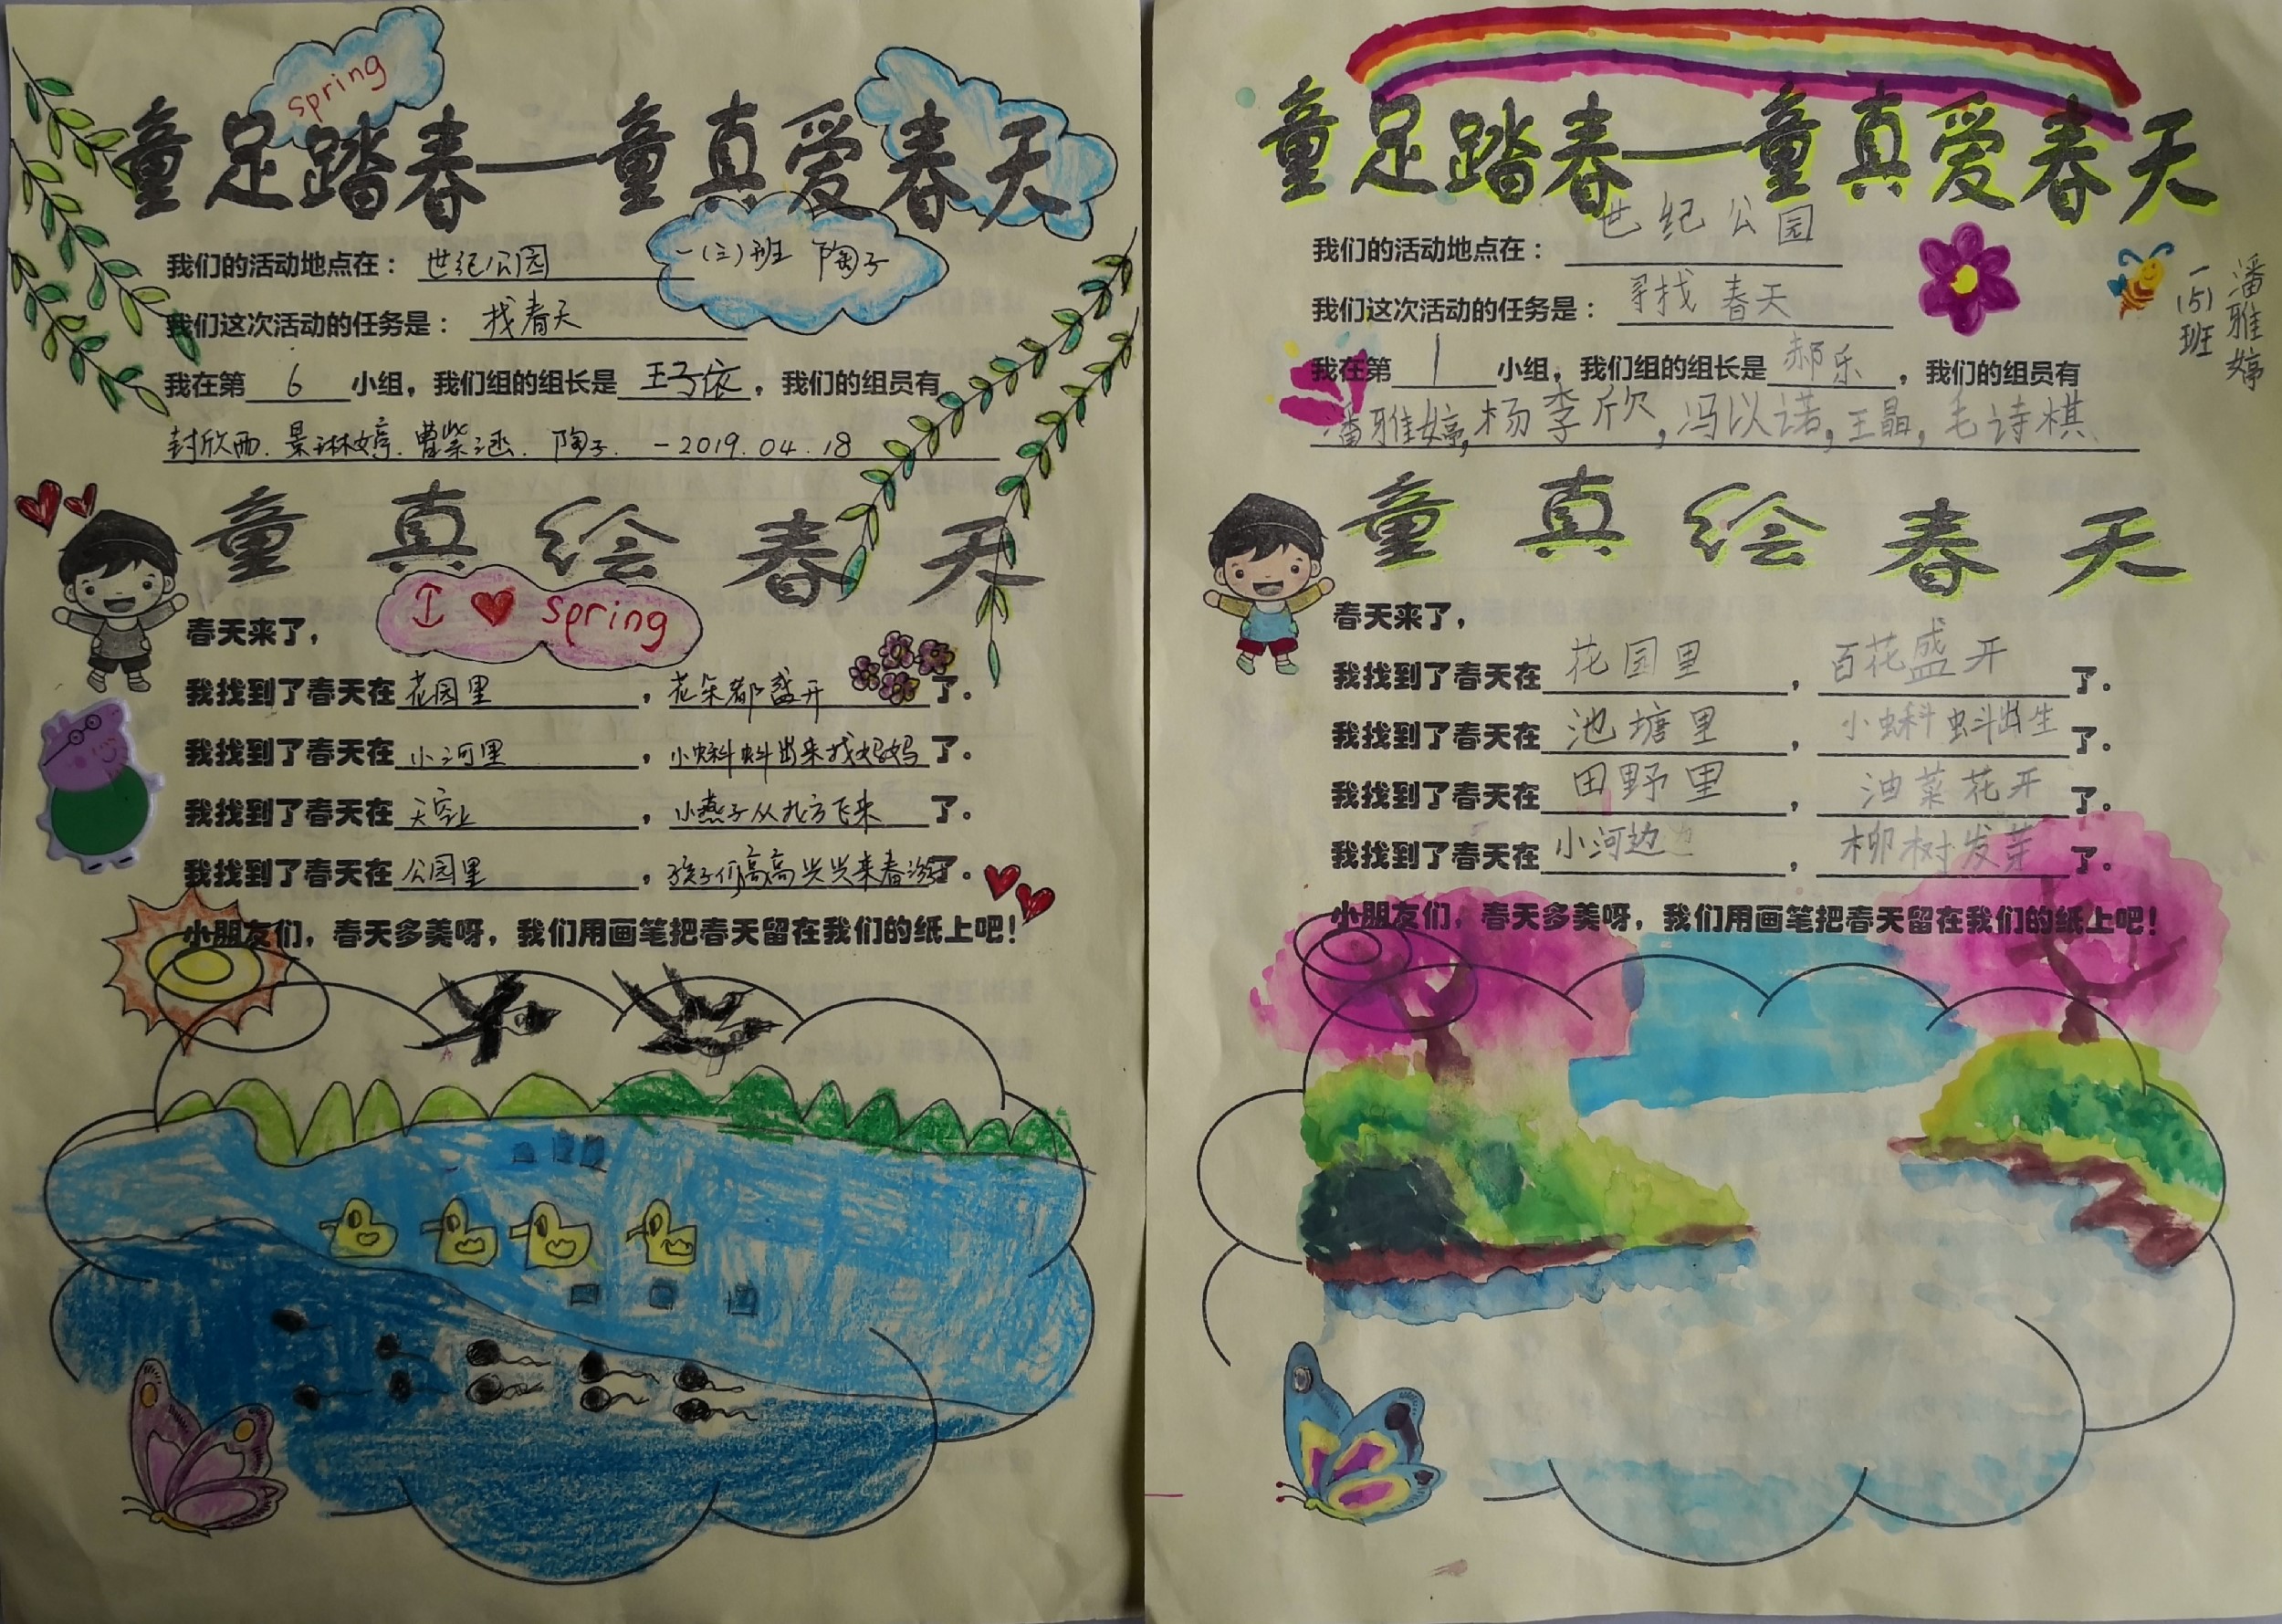 spring
童足踏春——童真爱春天
我们的活动地点在：世纪公园
一(三)班 陶子
我们这次活动的任务是：找春天
我在第6小组，我们组的组长是王子依，我们的组员有
封欣西.景琳婷.曹紫涵.陶子.—2019.04.18
童真绘春天
I ♥ spring
春天来了，
我找到了春天在花园里，花朵都盛开了。
我找到了春天在小河里，小蝌蚪出来找妈妈了。
我找到了春天在天空上，小燕子从北方飞来了。
我找到了春天在公园里，孩子们高高兴兴来春游了。
小朋友们，春天多美呀，我们用画笔把春天留在我们的纸上吧！
童足踏春——童真爱春天
我们的活动地点在：世纪公园
我们这次活动的任务是：寻找春天
潘雅婷
一(5)班
我在第1小组，我们组的组长是郝乐，我们的组员有
潘雅婷,杨李欣,冯以诺,王晶,毛诗棋
童真绘春天
春天来了，
我找到了春天在花园里，百花盛开了。
我找到了春天在池塘里，小蝌蚪出生了。
我找到了春天在田野里，油菜花开了。
我找到了春天在小河边，柳树发芽了。
小朋友们，春天多美呀，我们用画笔把春天留在我们的纸上吧！